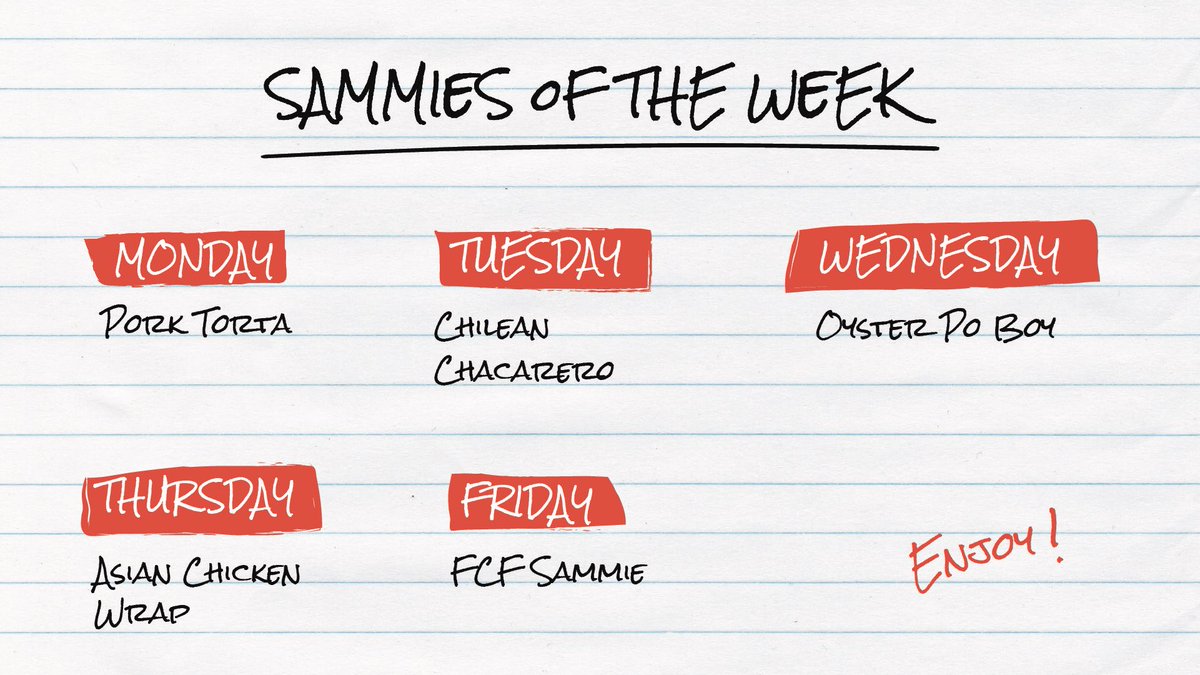 SAMMIES OF THE WEEK
MONDAY
PORK TORTA
TUESDAY
CHILEAN
CHACARERO
WEDNESDAY
OYSTER PO BOY
THURSDAY
ASIAN CHICKEN
WRAP
FRIDAY
FCF SAMMIE
ENJOY!